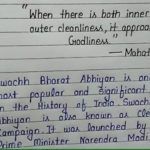 "When there is both inner
outer cleanliness, it approa
Godliness."
— Maha
Swachh Bharat Abhiyan is on
most popular and significant
in the History of India. Swach
Abhiyan is also known as Cle
Campaign. It was launched by
Prime Minister Narendra Mod